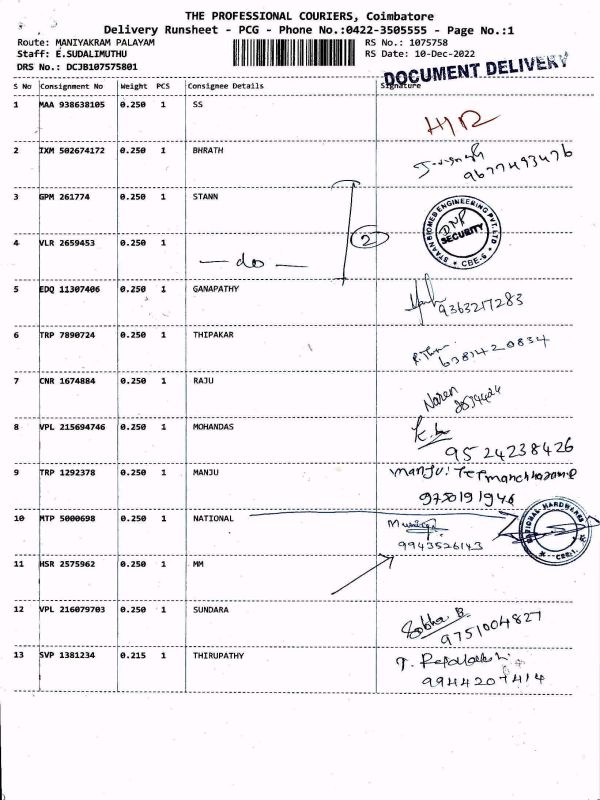 THE PROFESSIONAL COURIERS, Coimbatore
Delivery Runsheet - PCG - Phone No.:0422-3505555 - Page No.:1
Route: MANIYAKRAM PALAYAM RS No.: 1075758
Staff: E.SUDALIMUTHU RS Date: 10-Dec-2022
DRS No.: DCJB107575801
DOCUMENT DELIVERY
S No Consignment No Weight PCS Consignee Details Signature
1 MAA 938638105 0.250 1 SS
2 IXM 502674172 0.250 1 BHRATH
9677493476
3 GPM 261774 0.250 1 STANN
STAAN BIOMED ENGINEERING PVT. LTD
SECURITY
* CBE-6 *
2
4 VLR 2659453 0.250 1
— do —
5 EDQ 11307406 0.250 1 GANAPATHY
9363217283
6 TRP 7890724 0.250 1 THIPAKAR
6381420834
7 CNR 1674884 0.250 1 RAJU
Naren
8 VPL 215694746 0.250 1 MOHANDAS
9524238426
9 TRP 1292378 0.250 1 MANJU
Manju
10 MTP 5000698 0.250 1 NATIONAL
9943526143
NATIONAL HARDWARES
* CBE-1. *
11 HSR 2575962 0.250 1 MM
12 VPL 216079703 0.250 1 SUNDARA
Sobha B.
9751004827
13 SVP 1381234 0.215 1 THIRUPATHY
9944207414